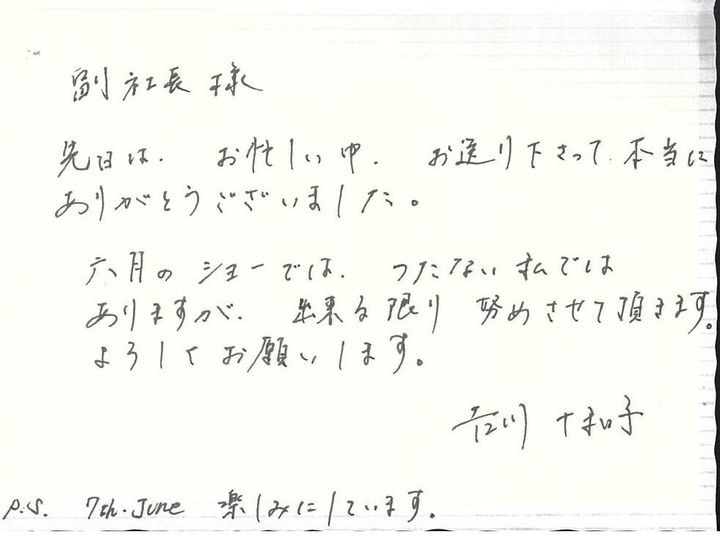 副社長様
先日は、お忙しい中、お送り下さって、本当に
ありがとうございました。
六月のショーでは、つたない私では
ありますが、出来る限り努めさせて頂きます。
よろしくお願いします。
君川十和子
P.S. 7th. June 楽しみにしています。